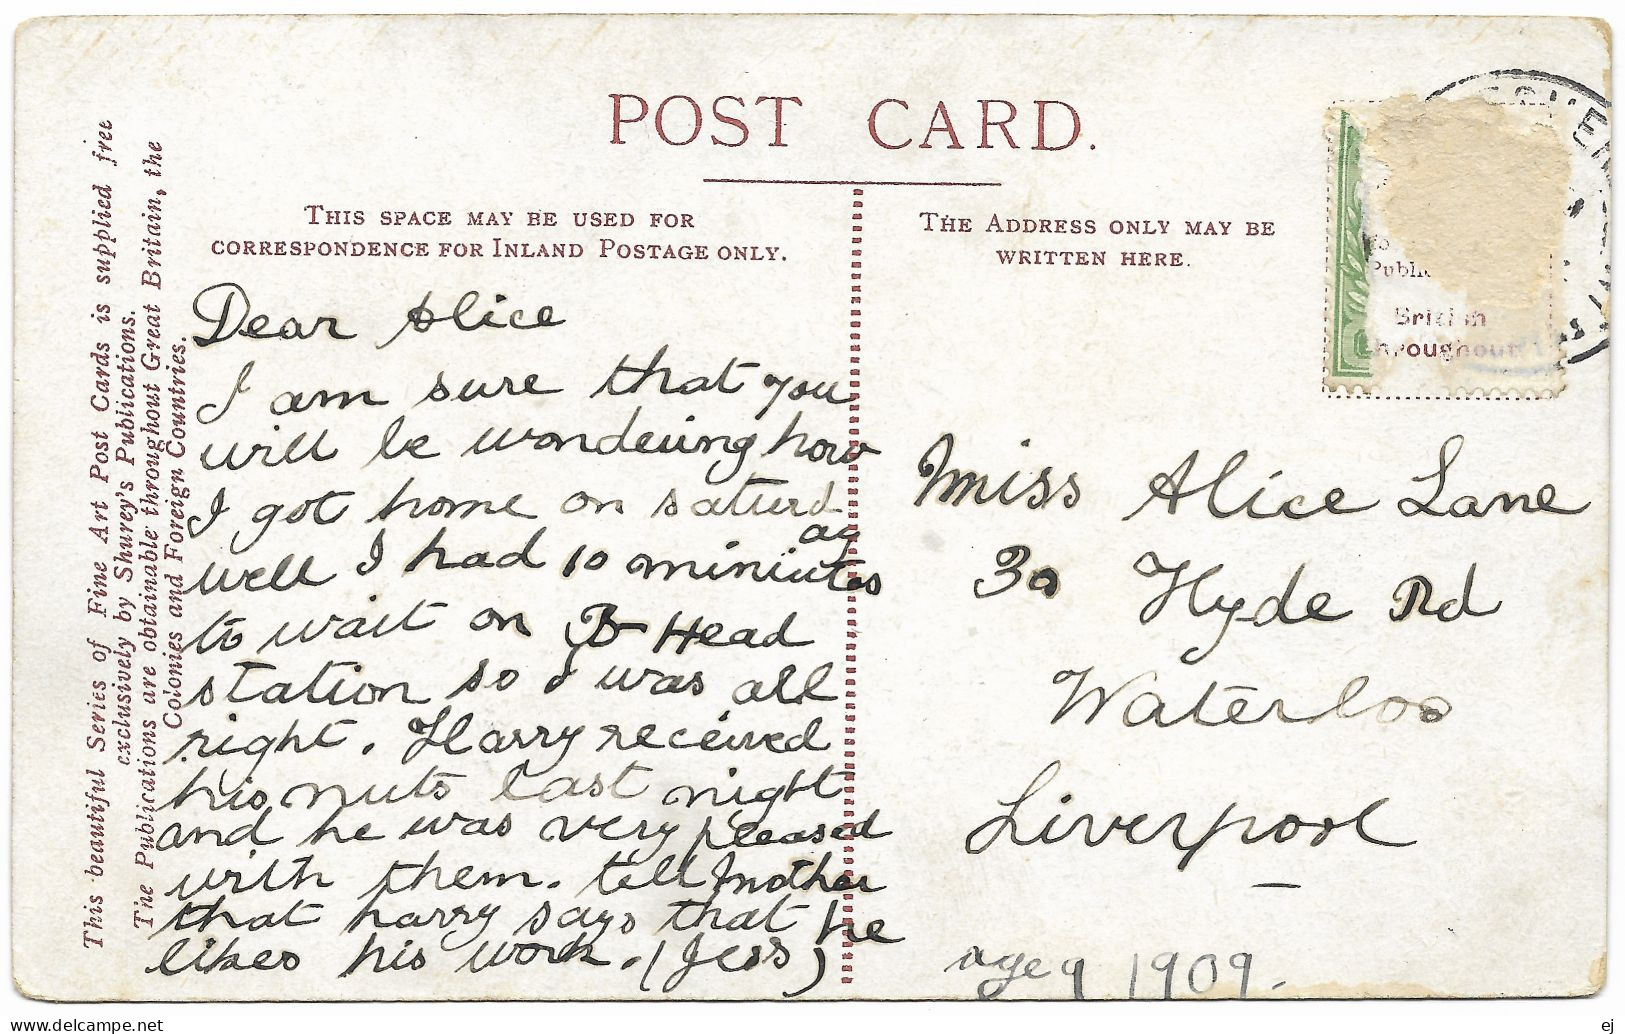 POST CARD.
THIS SPACE MAY BE USED FOR
CORRESPONDENCE FOR INLAND POSTAGE ONLY.
THE ADDRESS ONLY MAY BE
WRITTEN HERE.
This beautiful Series of Fine Art Post Cards is supplied free
exclusively by Shurey's Publications.
The Publications are obtainable throughout Great Britain, the
Colonies and Foreign Countries.
Dear Alice
I am sure that you
will be wondering how
I got home on saturd
ay
well I had 10 miniutes
to wait on B Head
station so I was all
right. Harry received
his nuts last night
and he was very pleased
with them. tell mother
that harry says that he
likes his work. (Jess)
Miss Alice Lane
30 Hyde Rd
Waterloo
Liverpool
age 9 1909.
British
throughout
delcampe.net
ej